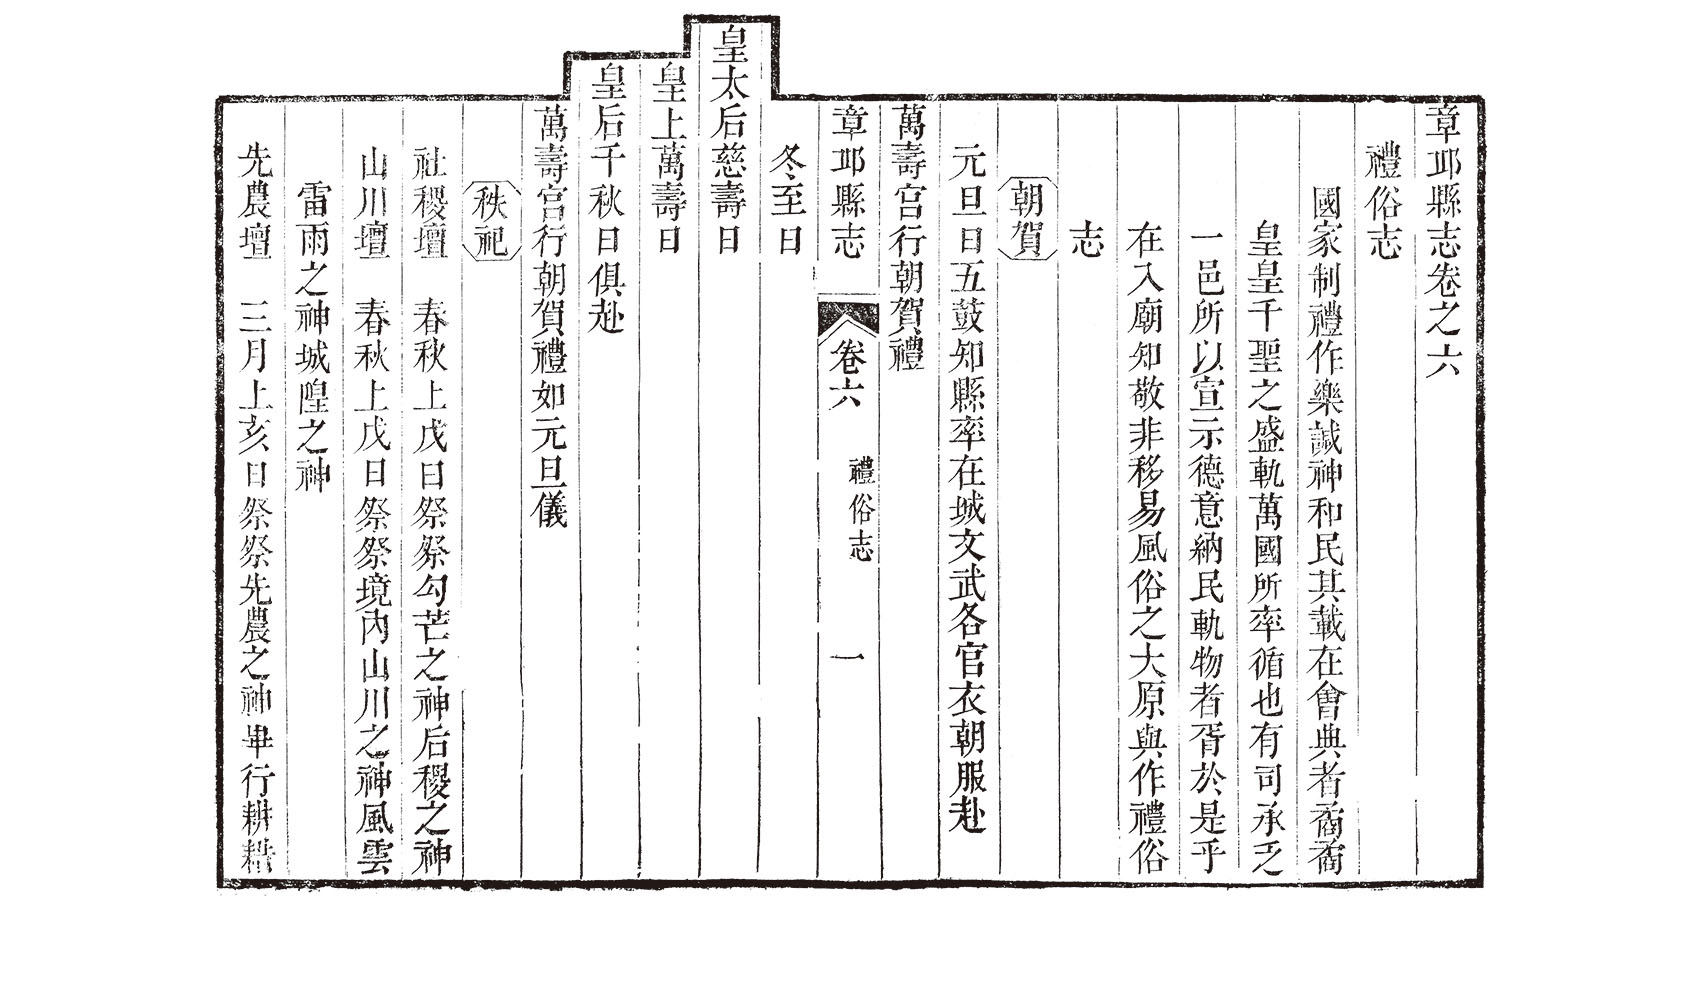 章邱縣志卷之六
禮俗志
國家制禮作樂諴神和民其載在會典者矞矞
皇皇千聖之盛軌萬國所率循也有司承乏
一邑所以宣示德意納民軌物者胥於是乎
在入廟知敬非移易風俗之大原與作禮俗
志
朝賀
元旦日五鼓知縣率在城文武各官衣朝服赴
萬壽宮行朝賀禮
章邱縣志 卷六 禮俗志 一
冬至日
皇太后慈壽日
皇上萬壽日
皇后千秋日俱赴
萬壽宮行朝賀禮如元旦儀
秩祀
社稷壇 春秋上戊日祭祭勾芒之神后稷之神
山川壇 春秋上戊日祭祭境內山川之神風雲
雷雨之神城隍之神
先農壇 三月上亥日祭祭先農之神畢行耕耤